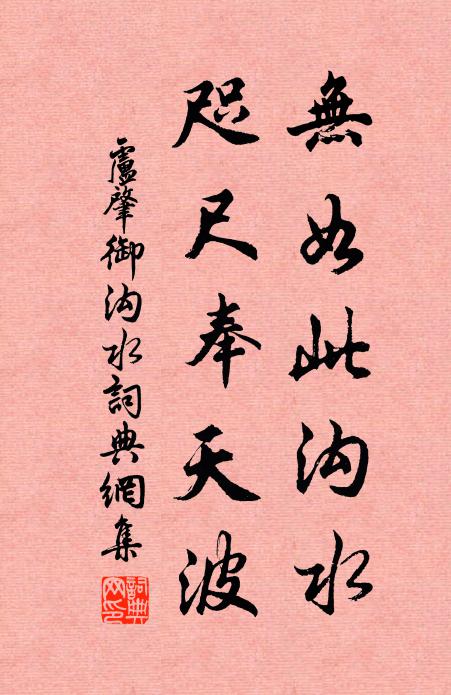 無如此沟水
咫尺奉天波
盧肇御沟水詞典網集
詞典網印